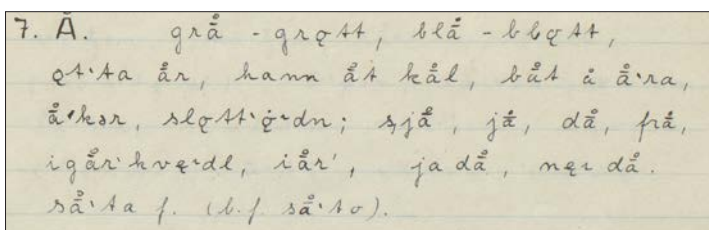 7. Å. grå̄ - grǫtt, blå̄ - blǫtt,
ǫt·ta å̄r, hann å̄t kå̄l, bå̄t å å̄·ra,
å̄·kər, slǫtt·ǫ̇·dn; sjå̄, já̄, då̄, frå̄,
igå̄r·kvę·dl, iå̄r·, ja då̄, nęi då̄.
så̄·ta f. (b.f. så̄·to).